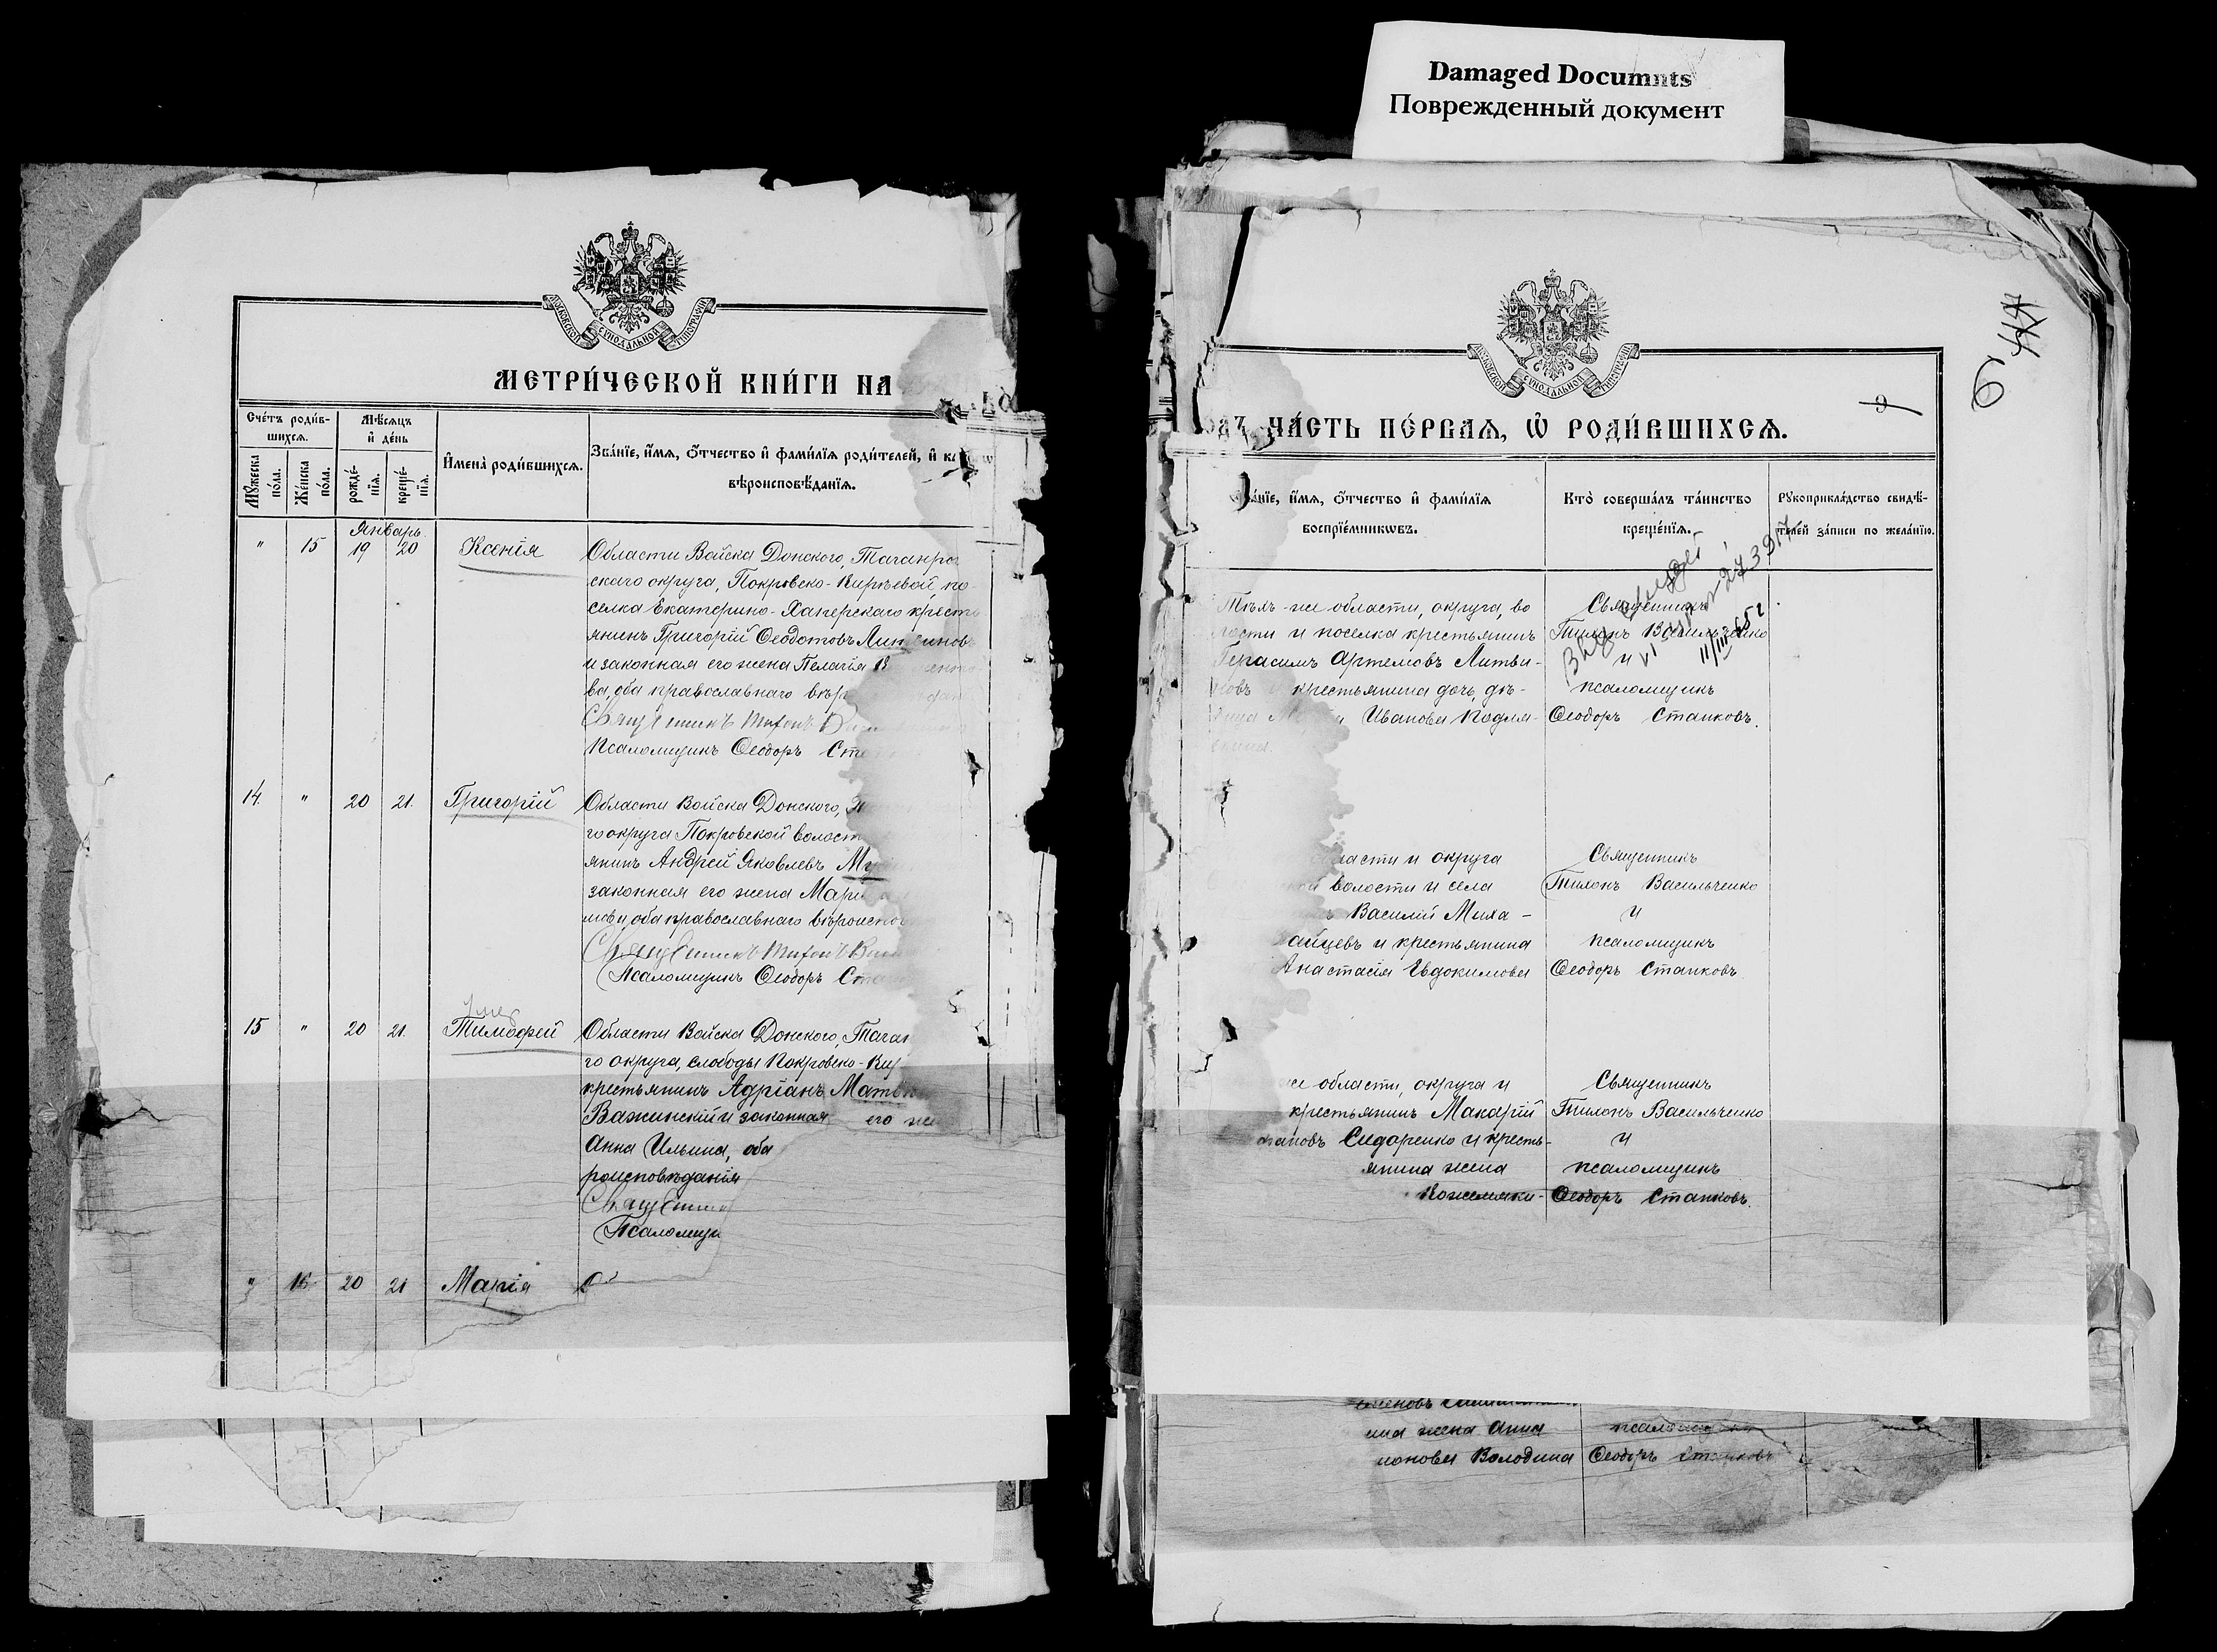 Damaged Documnts
Поврежденный документ
МОСКОВСКОЙ СѴНОДАЛЬНОЙ ТИПОГРАФІИ
МЕТРИ́ЧЕСКОЙ КНИ́ГИ НА
Счéтъ роди́в-
шихсѧ.
Мѣ́сѧцъ
и҆ де́нь
Мꙋ́жеска по́ла.
Же́нска по́ла.
рожде́-
нїѧ.
креще́-
нїѧ.
И҆мена̀ роди́вшихсѧ.
Зва́нїе, и҆́мѧ, ѻ҆́тчество и҆ фами́лїѧ роди́телей, и҆ ка
вѣроисповѣ́данїѧ.
Январь
" 15 19 20 Ксенія
Области Войска Донского, Таганрог
скаго округа, Покровско-Кирѣевой, по
селка Екатерино-Хаперскаго кресть
янинъ Григорій Ѳеодотовъ
и законная его жена Пелагія
ва, оба православнаго вѣр
Священникъ Тихонъ
Псаломщикъ Ѳеодоръ Ста
14. " 20 21. Григорій
Области Войска Донского,
го округа Покровской волост
янинъ Андрей Яковлевъ
законная его жена Марі
мова, оба православнаго вѣроиспов
Священникъ Тихонъ Васи
Псаломщикъ Ѳеодоръ Ста
умер
15 " 20 21. Тимоѳей
Области Войска Донского, Таган
го округа, слободы Покровско-Кир
крестьянинъ Адріанъ Матвѣ
Важинскій и законная его же
Анна Ильина, оба
роисповѣданія
Священник
Псаломщи
" 16 20 21 Марія
МОСКОВСКОЙ СѴНОДАЛЬНОЙ ТИПОГРАФІИ
6
9
ОДЪ ЧА́СТЬ ПЕ́РВАѦ, Ѽ РОДИ́ВШИХСѦ.
ва́нїе, и҆́мѧ, ѻ҆́тчество и҆ фами́лїѧ
воспрїе́мникѡвъ.
Кто̀ соверша́лъ та́инство
креще́нїѧ.
Рꙋкоприкла́дство свидѣ́-
телей за́писи по жела́нїю.
Тѣхъ-же области, округа, во
лости и поселка крестьянинъ
Герасимъ Артемовъ Литви-
новъ и крестьянина дочь, дѣ-
Иванова Подля-
Священникъ
Тихонъ Васильченко
и
псаломщикъ
Ѳеодоръ Станковъ.
области и округа
волости и села
Василій Миха-
айцевъ и крестьянина
Анастасія Евдокимова
Священникъ
Тихонъ Васильченко
и
псаломщикъ
Ѳеодоръ Станковъ
же области, округа и
крестьянинъ Макарій
Сидоренко и кресть-
янина жена
Кожемяки-
Священникъ
Тихонъ Васильченко
и
псаломщикъ
Ѳеодоръ Станковъ.
ина жена Анна
Володина
Ѳеодоръ Станковъ